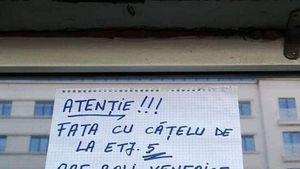 ATENȚIE!!!
FATA CU CĂȚELU DE
LA ETJ. 5
ARE BOLI VENERICE